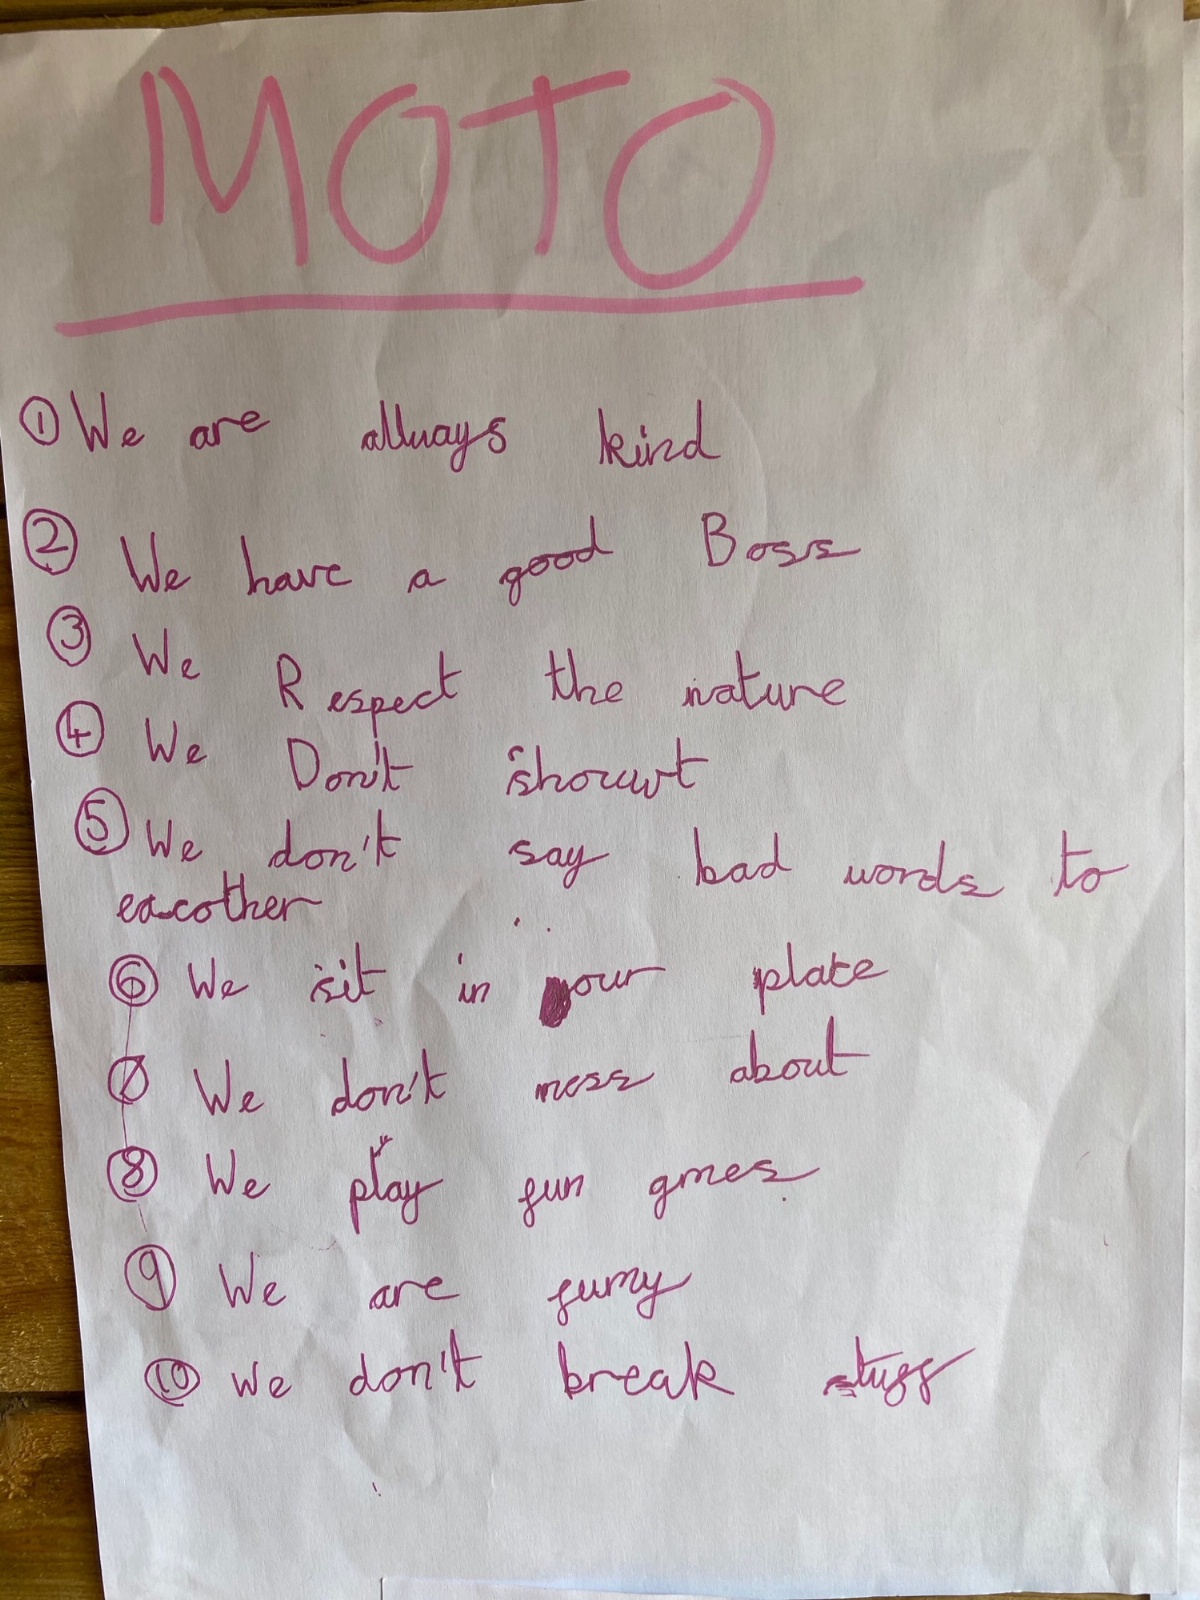 MOTO
① We are allways kind
② We have a good Boss
③ We Respect the nature
④ We Don't shouwt
⑤ We don't say bad words to
eacother
⑥ We sit in our place
⑦ We don't mess about
⑧ We play fun gmes
⑨ We are funny
⑩ We don't break stuff